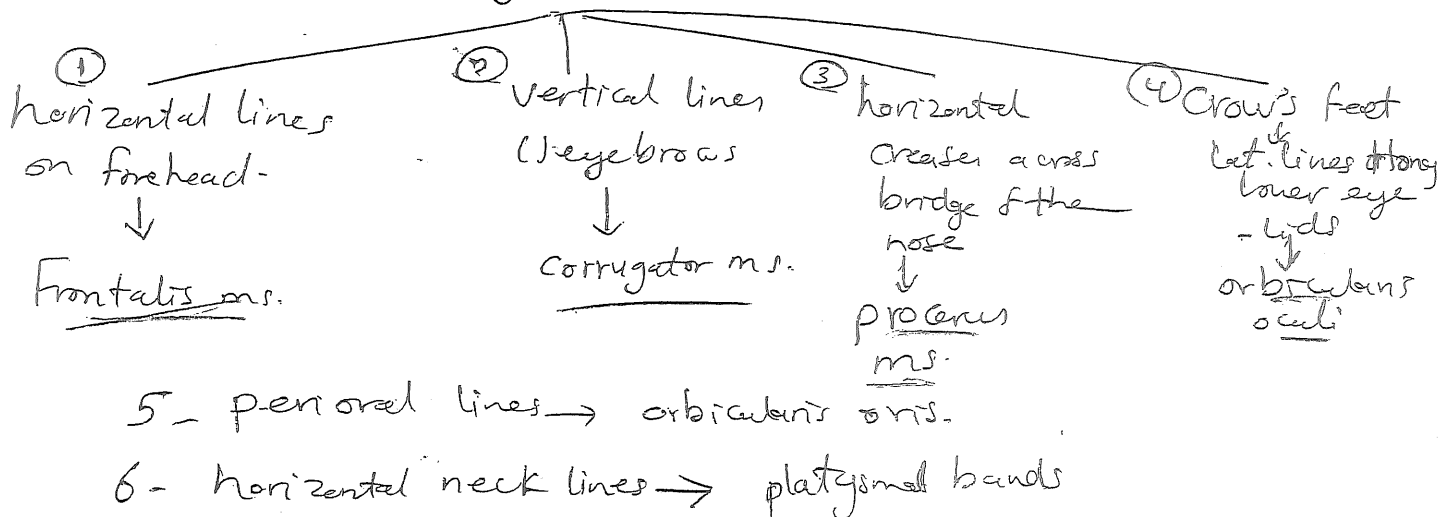 ①
horizental lines
on forehead-
↓
Frontalis ms.
②
vertical lines
() eyebrows
↓
corrugator ms.
③
horizontal
creases across
bridge of the
nose
↓
procerus
ms.
④ Crow's feet
↓
Lat. lines along
lower eye
- lids
↓
orbicularis
oculi
5_ perioral lines → orbicularis oris.
6- horizental neck lines → platysmal bands